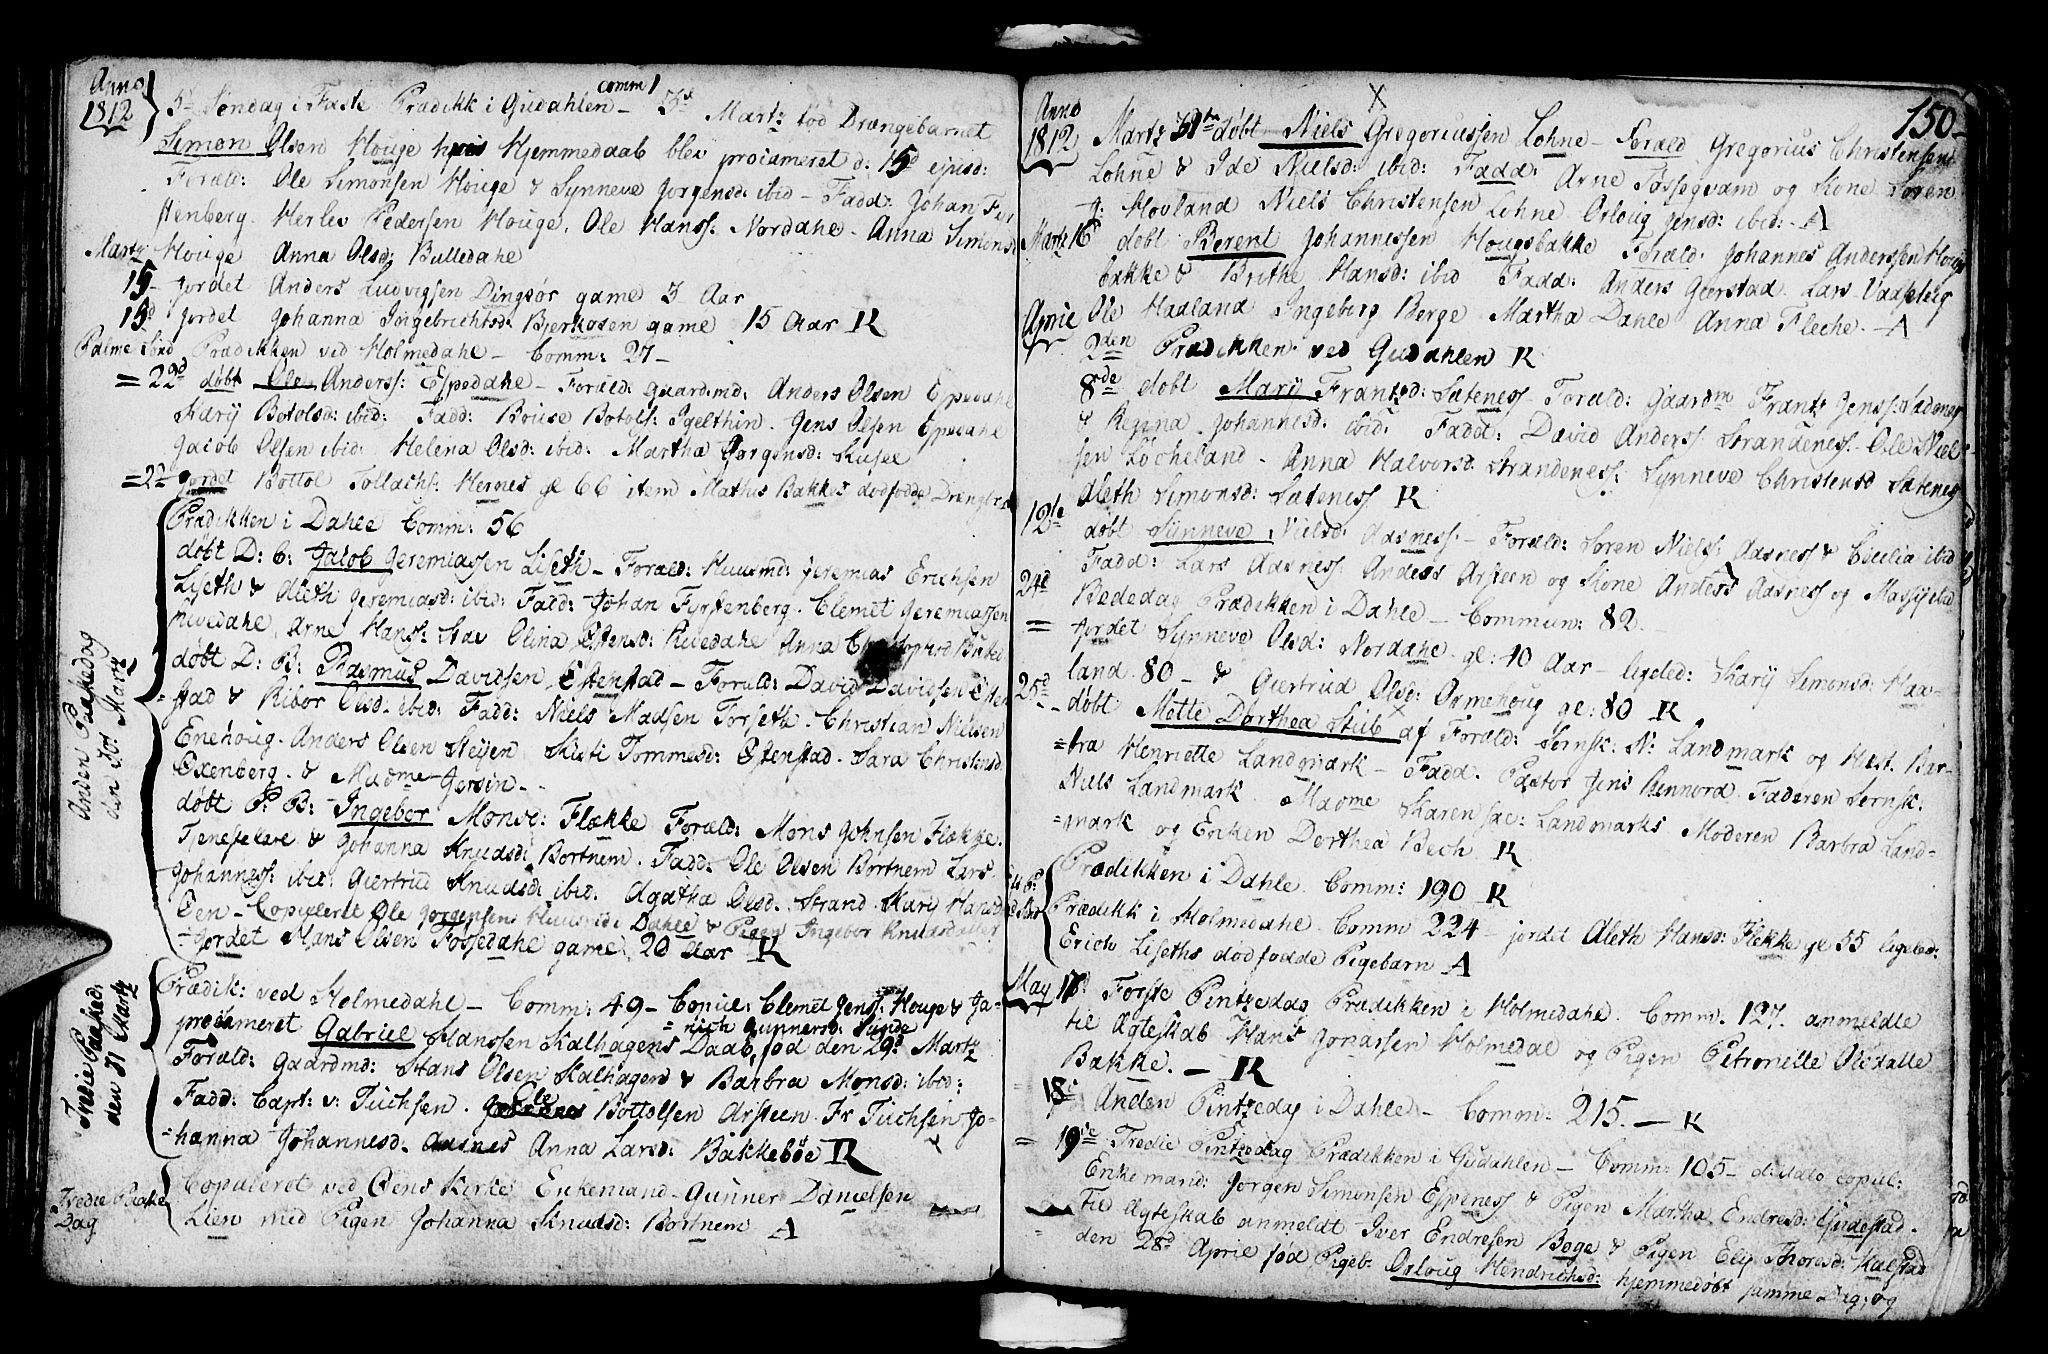 Anno
1812
5te Søndag i Faste Prædikk i Gudahlen – comm 1 3d Martz fød Drængebarnet
Simon Olsen Houge hvis Hjemmedaab blev proclameret d: 15d ejusd:
Foræld: Ole Simonsen Houge & Synneve Jorgensd: ibid – Fadd: Johan Fyr
stenberg. Herlev Pedersen Houge. Ole Hanss: Nordahl – Anna Simonsd
Houge Anna Olsd: Bulledahl
Martz
15 – Jordet Anders Ludvigsen Dingsør game 3 Aar
15d Jordet Johanna Ingebrichtsd: Bjerkosen game 15 Aar R
Palme Sønd Prædikken ved Holmedahl – Comm: 27 –
= 22d døbt Ole Anderss: Espedahl – Foræld: gaardmd: Anders Olsen Epedahl
Karij Botolsd: ibid: Fadd: Botols: Jens Olsen Epedahl
Jacob Olsen ibid: Helena Olsd: ibid: Martha Jorgensd:
= 22 Jordet Bottol Tollachs: Hernes gl 66 item Mathis Bakkes dødfødde Drængeb
Anden Paaskedag
den 30 Martz
Prædikken i Dahle Comm: 56
døbt D: B: Jacob Jeremiassen Liseth – Foræld: Huusmd: Jeremias Erichsen
Liseth & Aleth Jeremiasd: ibid: Fadd: Johan Fyrstenberg. Clemet Jeremiassen
Hvedahl, Arne Hanss: Olina Hvedahl Anna
døbt D: B: Rasmus Davidsen Estenstad – Foræld: David Davidsen Esten
stad & Ribor Olsd. ibid: Fadd: Niels Madsen Torseth. Christian Nielsen
Enehoug. Anders Olsen Steijen Kisti Tommesd: Estenstad. Sara Christensd
Oxenberg. & Madme Jersin –
døbt P: B: Ingebor Monsd: Flække Foræld: Mons Johnsen Flække.
Tjenestekarl & Johanna Knudsd: Bortnem. Fadd: Ole Olsen Bortnem Lars
Johanness: ibid: Giertrud Knudsd: ibid. Agatha Olsd. Strand Kari Hansd
Øen – Copuleret Ole Jorgensen Dahle & Pigen Ingebor Knudsdatter
– Jordet Hans Olsen Fossedahl game. 20 Aar R
Tredie Paasked:
den 31 Martz
Prædik: ved Holmedahl – Comm: 49 – Copul: Clemet Jens: Houge & Ja-
= nich Gunnersd: Sunde
proclameret Gabriel Hanssen Kalhagens Daab, fød den 29d Martz
Foræld: Gaardmd: Hans Olsen Kalhagen & Barbra Monsd: ibid:
Fadd: Capt: v: Tuchsen. Ole Bottolsen Arsteen Fr Tuchsen Jo-
= hanna Johannesd. Aasnes Anna Larsd: Bakkebøe R
Tredie Paaske
Dag
Copuleret ved Øens Kirke Enkemand Gunner Danielsen
Lien med Pigen Johanna Knudsd: Bortnem A
150 –
Anno
1812
Martz døbt Niels Gregoriussen Lohne – Foræld. Gregorius Christensen
Lohne & Ide Nielsd: ibid: Fadd: Arne Fossegvam og Kone Søren
J: Hovland Niels Christensen Lohne Orloug Jensd: ibid: – A
Martz 16 døbt Berent Johannessen Hougsbakke Foræld: Johannes Anderssen Hougs
bakke & Brithe Hansd: ibid Fadd: Anders Gierstad. Lars
Ole Hadland Ingeborg Berge Martha Dahle Anna Fleche. – A
Aprile
2den Prædikken ved Gudahlen R
8de døbt Marij Frantzd: Satenes – Foræld: Gaardm Frantz Jenss: Sadenes
& Regina Johannesd: ibid: Fadd: David Anderss Strandeness: Ole Niel-
sen Locheland – Anna Halvorsd. Strandeness: Synneve Christensd Satenes
Aleth Simonsd: Satenes R
12te døbt Synneve Nielsd: Aasness – Foræld: Søren Niels: Aasness & Cicilia ibid
Fadd: Lars Aasness Anders Arsteen og Kone Anders Aasness og ibid
24d Bededag Prædikken i Dahle – Commun: 82 –
= Jordet Synneve Olsd: Nordahl. gl: 40 Aar – ligeled: Karij Simonsd: Haa-
land. 80 – & Giertrud Olsd: Ormehoug gl: 80 R
25d døbt Mette Dorthea Stub af Foræld: Sernsk: N: Landmark og Hust. Bar-
= bra Henriette Landmark – Fadd. Pastor Jens Bennord. Faderen Sernsk:
Niels Landmark. Madme Karen Jac: Landmarks Moderen Barbra Land=
= mark og Enken Dorthea Bech R
Prædikken i Dahle. Comm: 190 R
Prædikk i Holmedahl. Comm 224 – jordet Aleth Hansd: Flekke gl 55 ligeled:
Erich Liseths dødfødde Pigebarn A
May 17d Forste Pintzedag Prædikken i Holmedahl. Comm: 127. anmeldte
til Ægteskab Hans Jonassen Holmedal og Pigen Petronille Olsdatter
Bakke. – R
18d Anden Pintzedag i Dahle – Comm: 215. – R
= 19de Tredie Pintzedag Prædikken i Gudahlen – Comm: 105 – distdto copul:
Enkemand: Jørgen Simonsen Espeness & Pigen Martha Endresd: Gjudestad.
Til Ægteskab anmeldt Iver Endresen Boge & Pigen Ely Thoresd: Kalstad
den 28d Aprile fød Pigeb: Orloug Hendrichsd: hjemmedøbt samme Dag; og